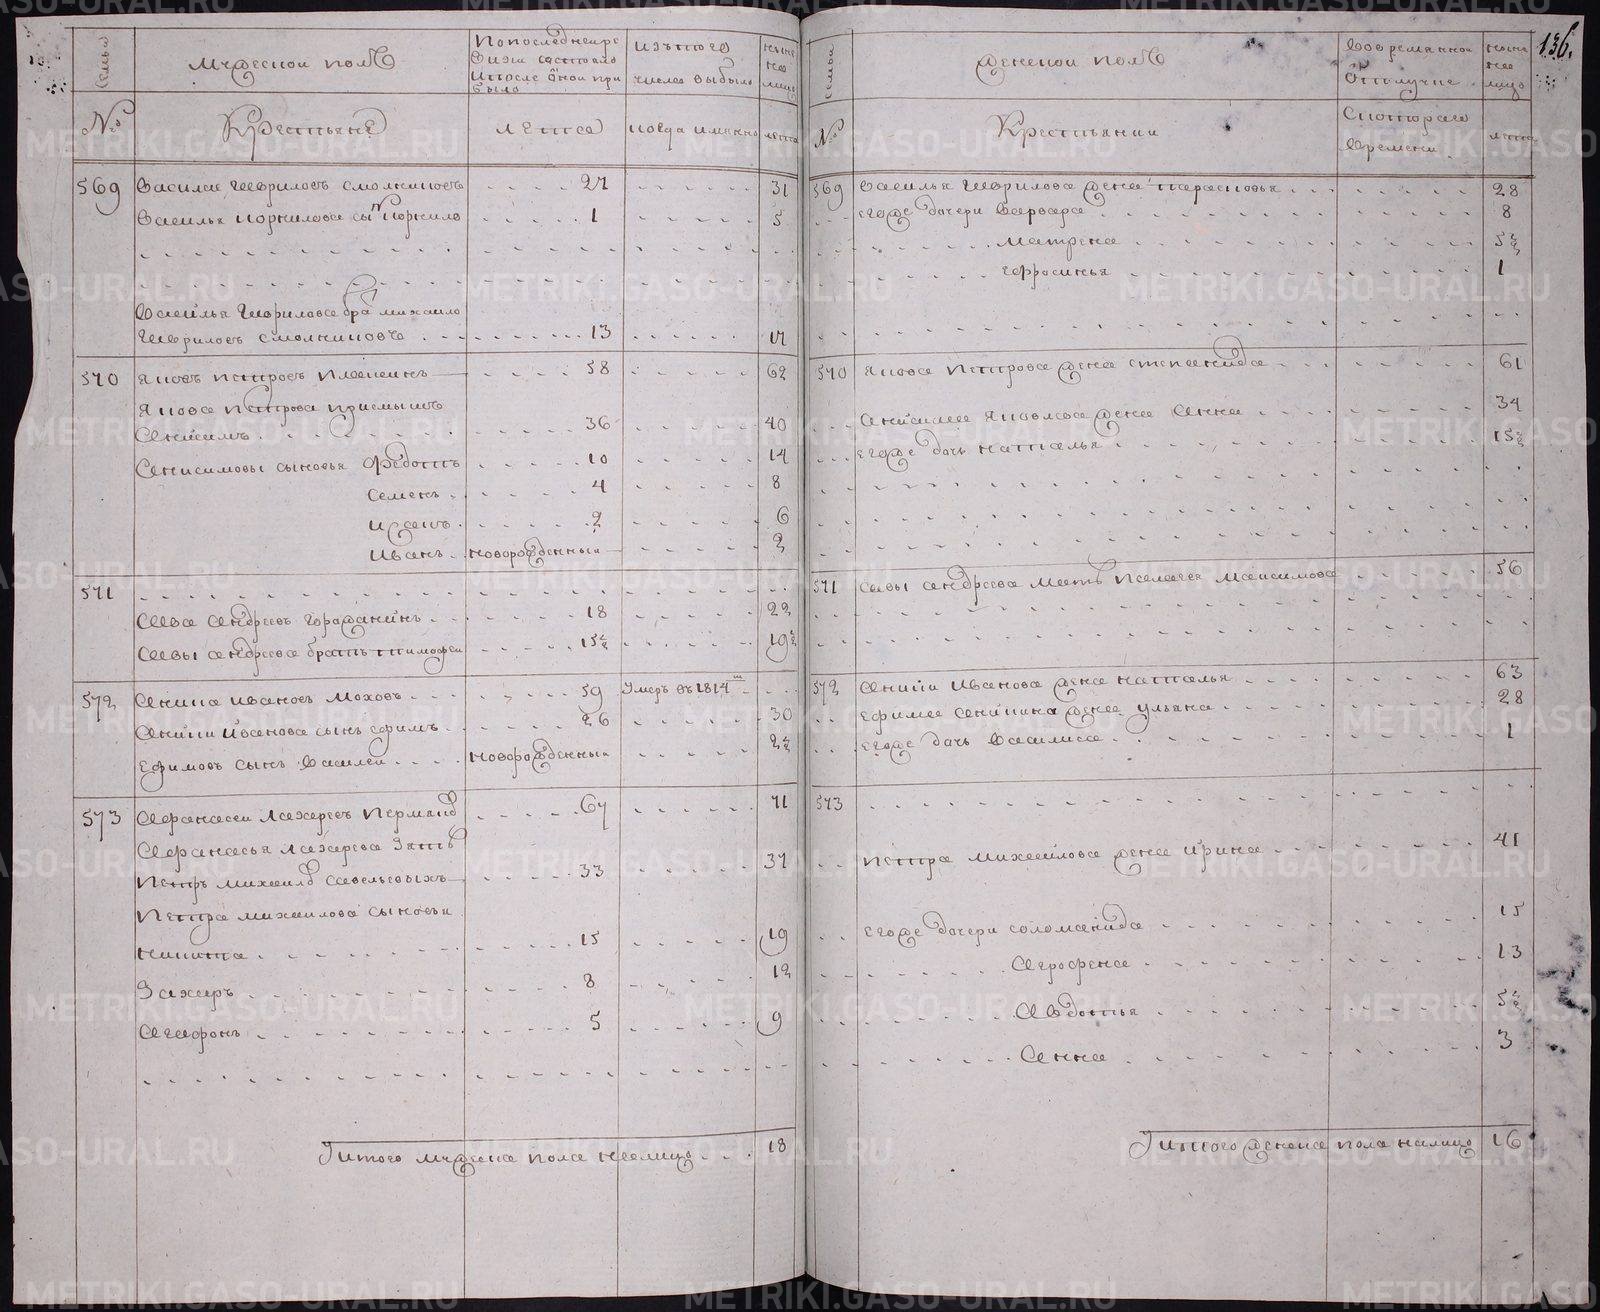 136.
семьи
Мужескои полъ
По последнеи ре
визии состояло
и после оной при
было
изъ того
числа выбыло
ныне
на
лицо
№
Крестьяне
лета
когда именно
лета
569 Василеи Гавриловъ Смолниковъ 27 31
Василья Корнилова сынъ Корнило 1 5
Василья Гаврилова братъ Михаило
Гавриловъ Смолниковъ 13 17
570 Яковъ Петровъ 58 62
Якова Петрова приемышъ
Анисимъ 36 40
Анисимовы сыновья Федотъ 10 14
Семенъ 4 8
Исакъ 2 6
Иванъ новорожденныи 2
571
Сава Андреевъ Горажанинъ 18 22
Савы Андреева братъ Тимофеи 15½ 19½
572 Аника Ивановъ Моховъ 59 Умеръ въ 1814м
Аники Иванова сынъ Ефимъ 26 30
Ефимовъ сынъ Василеи новорожденныи 2½
573 Афанасеи Лазаревъ 67 71
Афанасья Лазарева Зять
Петръ Михаиловъ Савельевыхъ 33 37
Петра Михаилова сыновья
Никита 15 19
Захаръ 8 12
Агафонъ 5 9
Итого мужеска пола налицо 18
семьи
Женскои полъ
Во временнои
отлучке
ныне
на
лицо
№
Крестьянки
С котораго
времени
лета
569 Василья Гаврилова жена Тарасовья 28
его же дочери Варвара 8
Матрена 5½
Ефросинья 1
570 Якова Петрова жена Степанида 61
Анисима Яковлева жена Анна 34
его же дочь Наталья 15½
571 Савы Андреева мать Пелагея Максимова 56
572 Аники Иванова жена Наталья 63
Ефима Аникина жена Ульяна 28
его же дочь Василиса 1
573
Петра Михаилова жена Ирина 41
его же дочери Соломанида 15
Агрофена 13
Авдотья 5½
Анна 3
Итого женска пола налицо 16
METRIKI.GASO-URAL.RU